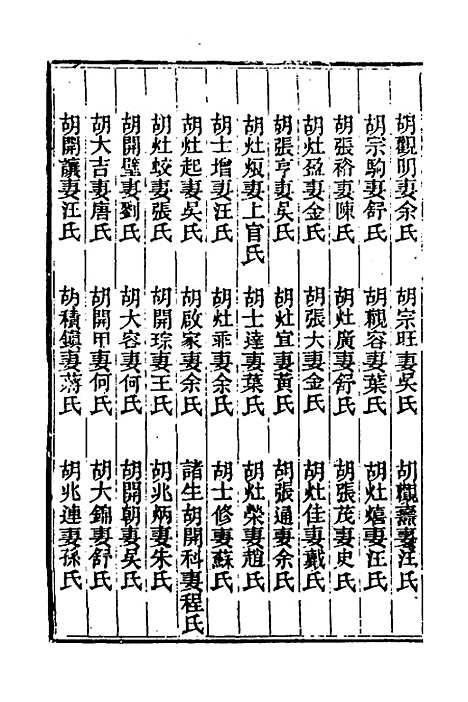 胡觀明妻余氏 胡宗旺妻吳氏 胡觀燾妻汪氏
胡宗駒妻舒氏 胡觀容妻葉氏 胡灶熺妻汪氏
胡張裕妻陳氏 胡灶廣妻舒氏 胡張茂妻史氏
胡灶盈妻金氏 胡張大妻金氏 胡灶佳妻戴氏
胡張亨妻吳氏 胡灶宜妻黃氏 胡張通妻余氏
胡灶妻上官氏 胡士達妻葉氏 胡灶榮妻趙氏
胡士增妻汪氏 胡灶乖妻余氏 胡士修妻蘇氏
胡灶起妻吳氏 胡啟家妻余氏 諸生胡開科妻程氏
胡灶蛟妻張氏 胡開琮妻王氏 胡兆炳妻朱氏
胡開壁妻劉氏 胡大容妻何氏 胡開朝妻吳氏
胡大吉妻唐氏 胡開甲妻何氏 胡大錦妻舒氏
胡開讓妻汪氏 胡積鎮妻蔣氏 胡兆連妻孫氏